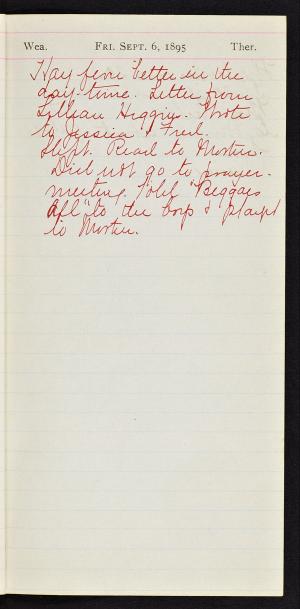 Wea. FRI. SEPT. 6, 1895 Ther.
Hay fever better in the
day-time. Letter from
Lillian Higgins. Wrote
to Jessica & Fred.
Slept. Read to Mother.
Did not go to prayer-
meeting. Told "Beggars
All" to the boys & played
to Mother.